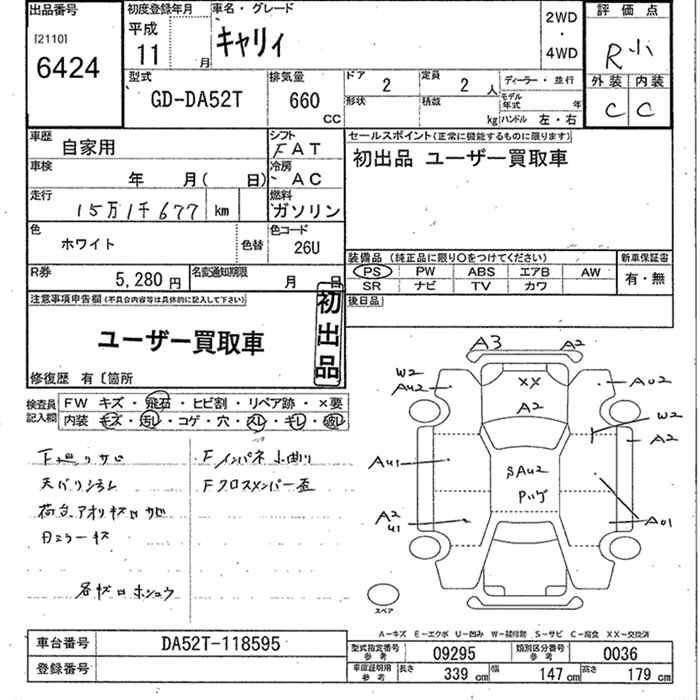 出品番号
[2110]
6424
初度登録年月
平成
11 月
車名・グレード
キャリィ
2WD
・
4WD
評価点
R小
外装 内装
C C
型式
GD-DA52T
排気量
660
CC
ドア 2
定員 2 人
形状
積載 kg
ディーラー・並行
モデル年式 年
ハンドル 左・右
車歴
自家用
シフト
FAT
車検
年 月( 日)
冷房
AC
走行
15万1千677 km
燃料
ガソリン
色
ホワイト
色替
色コード
26U
R券
5,280 円
名変通知期限
月 日
セールスポイント(正常に機能するものに限ります)
初出品 ユーザー買取車
装備品 (純正品に限り○をつけてください)
PS PW ABS エアB AW
SR ナビ TV カワ
新車保証書
有・無
後日品
注意事項申告欄(不具合内容等は具体的に記入して下さい)
初出品
ユーザー買取車
修復歴 有〔箇所
検査員記入欄
FW キズ・飛石・ヒビ割・リペア跡・×要
内装 キズ・汚レ・コゲ・穴・スレ・キレ・破レ
下廻りサビ
天バリシミ
荷台アオリキズロサビ
日コラーキズ
各キズロホシュウ
Fインパネ小曲リ
Fクロスメンバー歪
A3
A2
W2
AU2
XX
A2
AU2
W2
A2
AU1
SAU2
Pハゲ
A2
U1
A01
スペア
A−キズ E−エクボ U−凹み W−補修跡 S−サビ C−腐食 XX−交換済
車台番号
DA52T-118595
登録番号
型式指定番号
参考
09295
類別区分番号
参考
0036
車庫証明用
参考
長さ 339 cm
幅 147 cm
高さ 179 cm